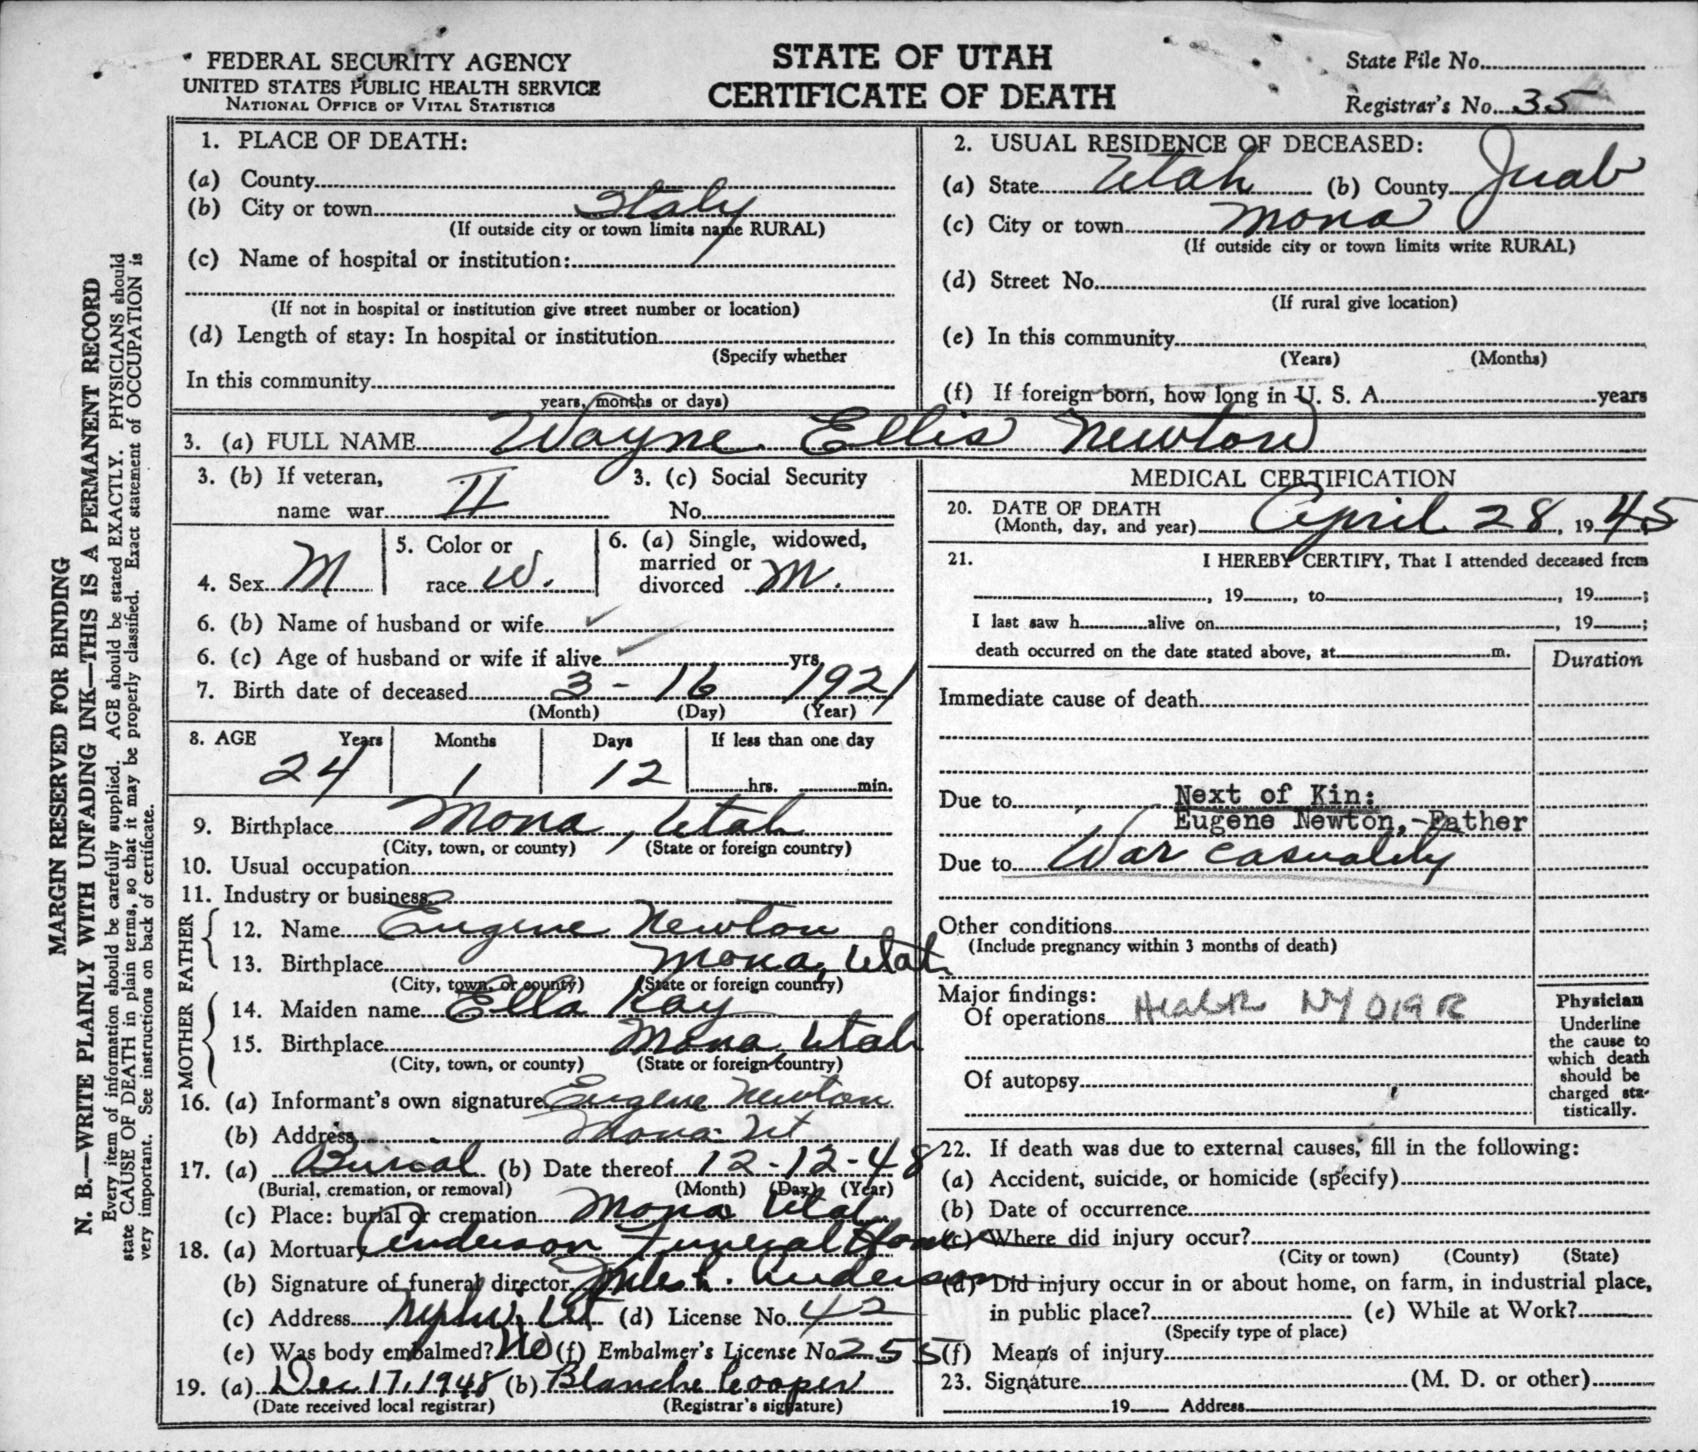 FEDERAL SECURITY AGENCY
UNITED STATES PUBLIC HEALTH SERVICE
NATIONAL OFFICE OF VITAL STATISTICS
STATE OF UTAH
CERTIFICATE OF DEATH
State File No.
Registrar's No. 35
MARGIN RESERVED FOR BINDING
N. B.—WRITE PLAINLY WITH UNFADING INK—THIS IS A PERMANENT RECORD
Every item of information should be carefully supplied. AGE should be stated EXACTLY. PHYSICIANS should
state CAUSE OF DEATH in plain terms, so that it may be properly classified. Exact statement of OCCUPATION is
very important. See instructions on back of certificate.
1. PLACE OF DEATH:
(a) County
(b) City or town Italy
(If outside city or town limits name RURAL)
(c) Name of hospital or institution:
(If not in hospital or institution give street number or location)
(d) Length of stay: In hospital or institution
(Specify whether
In this community
years, months or days)
2. USUAL RESIDENCE OF DECEASED:
(a) State Utah (b) County Juab
(c) City or town Mona
(If outside city or town limits write RURAL)
(d) Street No.
(If rural give location)
(e) In this community
(Years) (Months)
(f) If foreign born, how long in U. S. A. years
3. (a) FULL NAME Wayne Ellis Newton
3. (b) If veteran,
name war II
3. (c) Social Security
No.
4. Sex M
5. Color or
race W.
6. (a) Single, widowed,
married or
divorced M.
6. (b) Name of husband or wife
6. (c) Age of husband or wife if alive yrs.
7. Birth date of deceased 3 - 16 1921
(Month) (Day) (Year)
8. AGE Years Months Days If less than one day
24 1 12 hrs. min.
9. Birthplace Mona, Utah
(City, town, or county) (State or foreign country)
10. Usual occupation
11. Industry or business
FATHER
12. Name Eugene Newton
13. Birthplace Mona, Utah
(City, town, or county) (State or foreign country)
MOTHER
14. Maiden name Ella Kay
15. Birthplace Mona Utah
(City, town, or county) (State or foreign country)
16. (a) Informant's own signature Eugene Newton
(b) Address Mona Ut
17. (a) Burial (b) Date thereof 12-12-48
(Burial, cremation, or removal) (Month) (Day) (Year)
(c) Place: burial or cremation Mona Utah
18. (a) Mortuary Anderson Funeral Home
(b) Signature of funeral director Miles L. Anderson
(c) Address Nephi Ut (d) License No. 42
(e) Was body embalmed? No (f) Embalmer's License No. 255
19. (a) Dec 17, 1948 (b) Blanche Cooper
(Date received local registrar) (Registrar's signature)
MEDICAL CERTIFICATION
20. DATE OF DEATH
(Month, day, and year) April 28, 1945
21. I HEREBY CERTIFY, That I attended deceased from
, 19 , to , 19 ;
I last saw h alive on , 19 ;
death occurred on the date stated above, at m.
Duration
Immediate cause of death
Due to Next of Kin:
Eugene Newton,-Father
Due to War casualty
Other conditions
(Include pregnancy within 3 months of death)
Major findings:
Of operations
Of autopsy
Physician
Underline
the cause to
which death
should be
charged sta-
tistically.
22. If death was due to external causes, fill in the following:
(a) Accident, suicide, or homicide (specify)
(b) Date of occurrence
(c) Where did injury occur?
(City or town) (County) (State)
(d) Did injury occur in or about home, on farm, in industrial place,
in public place? (e) While at Work?
(Specify type of place)
(f) Means of injury
23. Signature (M. D. or other)
19 Address